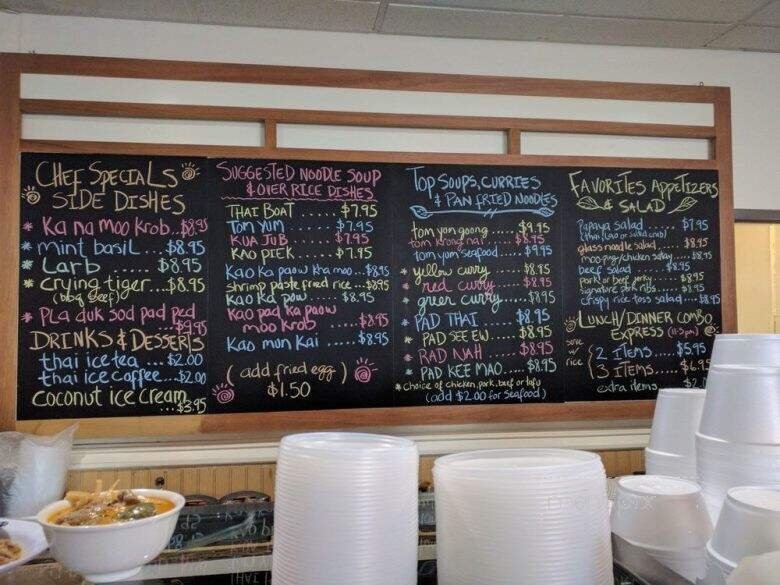 CHEF SPECIALS
SIDE DISHES
* Ka na moo krob..$8.95
* mint basil ... $8.95
* Larb ..... $8.95
* crying tiger ...$8.95
(bbq beef)
* Pla duk sod pad ped
....$9.95
DRINKS & DESSERTS
thai ice tea ....$2.00
thai ice coffee...$2.00
coconut ice cream
...$3.95
SUGGESTED NOODLE SOUP
& OVER RICE DISHES
THAI BOAT ..... $7.95
TOM YUM ..... $7.95
KUA JUB ..... $7.95
KAO PIEK ..... $7.95
Kao Ka paow kha moo ...$8.95
shrimp paste fried rice ...$8.95
Kao Ka pow ..... $8.95
Kao pad ka paow
moo krob .....$8.95
Kao mun Kai .....$8.95
(add fried egg)
$1.50
TOP SOUPS, CURRIES
& PAN FRIED NOODLES
tom yom goong ....$9.95
tom krong nai .....$8.95
tom yom seafood ....$9.95
* yellow curry ....$8.95
* red curry .....$8.95
* green curry .....$8.95
* PAD THAI .... $8.95
* PAD SEE EW .. $8.95
* RAD NAH .... $8.95
* PAD KEE MAO.... $8.95
* choice of chicken, pork, beef or tofu
(add $2.00 for seafood)
FAVORITES APPETIZERS
& SALAD
Papaya salad ..... $7.95
(thai, Lao or salted crab)
glass noodle salad ..... $8.95
moo ping/chicken satay .... $8.95
beef salad ..... $8.95
pork or beef jerky ....$8.95
signature pork ribs ....$8.95
crispy rice toss salad....$8.95
LUNCH/DINNER COMBO
EXPRESS (11-3 pm)
serve w/ rice
2 ITEMS.....$5.95
3 ITEMS....$6.95
extra items $2